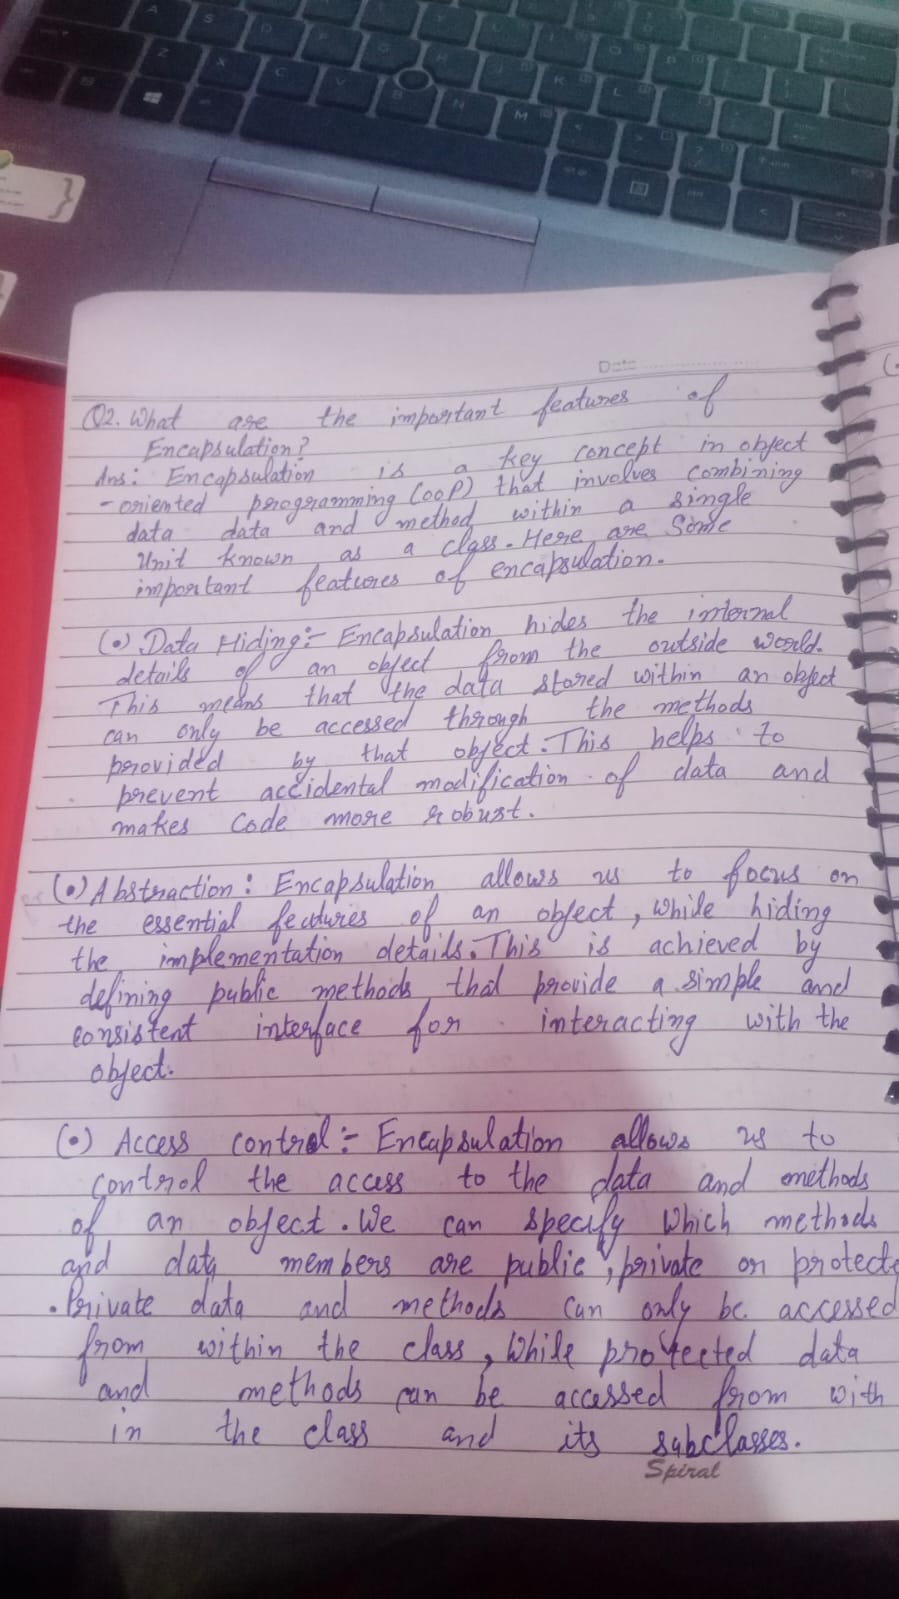 Date
Q2. What are the important features of
Encapsulation?
Ans: Encapsulation is a key concept in object
-oriented programming (OOP) that involves combining
data data and method within a single
Unit known as a class. Here are Some
important features of encapsulation.
(•) Data Hiding:- Encapsulation hides the internal
details of an object from the outside world.
This means that the data stored within an object
can only be accessed through the methods
provided by that object. This helps to
prevent accidental modification of data and
makes Code more robust.
(•) Abstraction: Encapsulation allows us to focus on
the essential features of an object, while hiding
the implementation details. This is achieved by
defining public methods that provide a simple and
consistent interface for interacting with the
object.
(•) Access control:- Encapsulation allows us to
control the access to the data and methods
of an object. We can specify which methods
and data members are public, private or protecte
. Private data and methods can only be accessed
from within the class, While protected data
and methods can be accessed from with
in the class and its subclasses.
Spiral